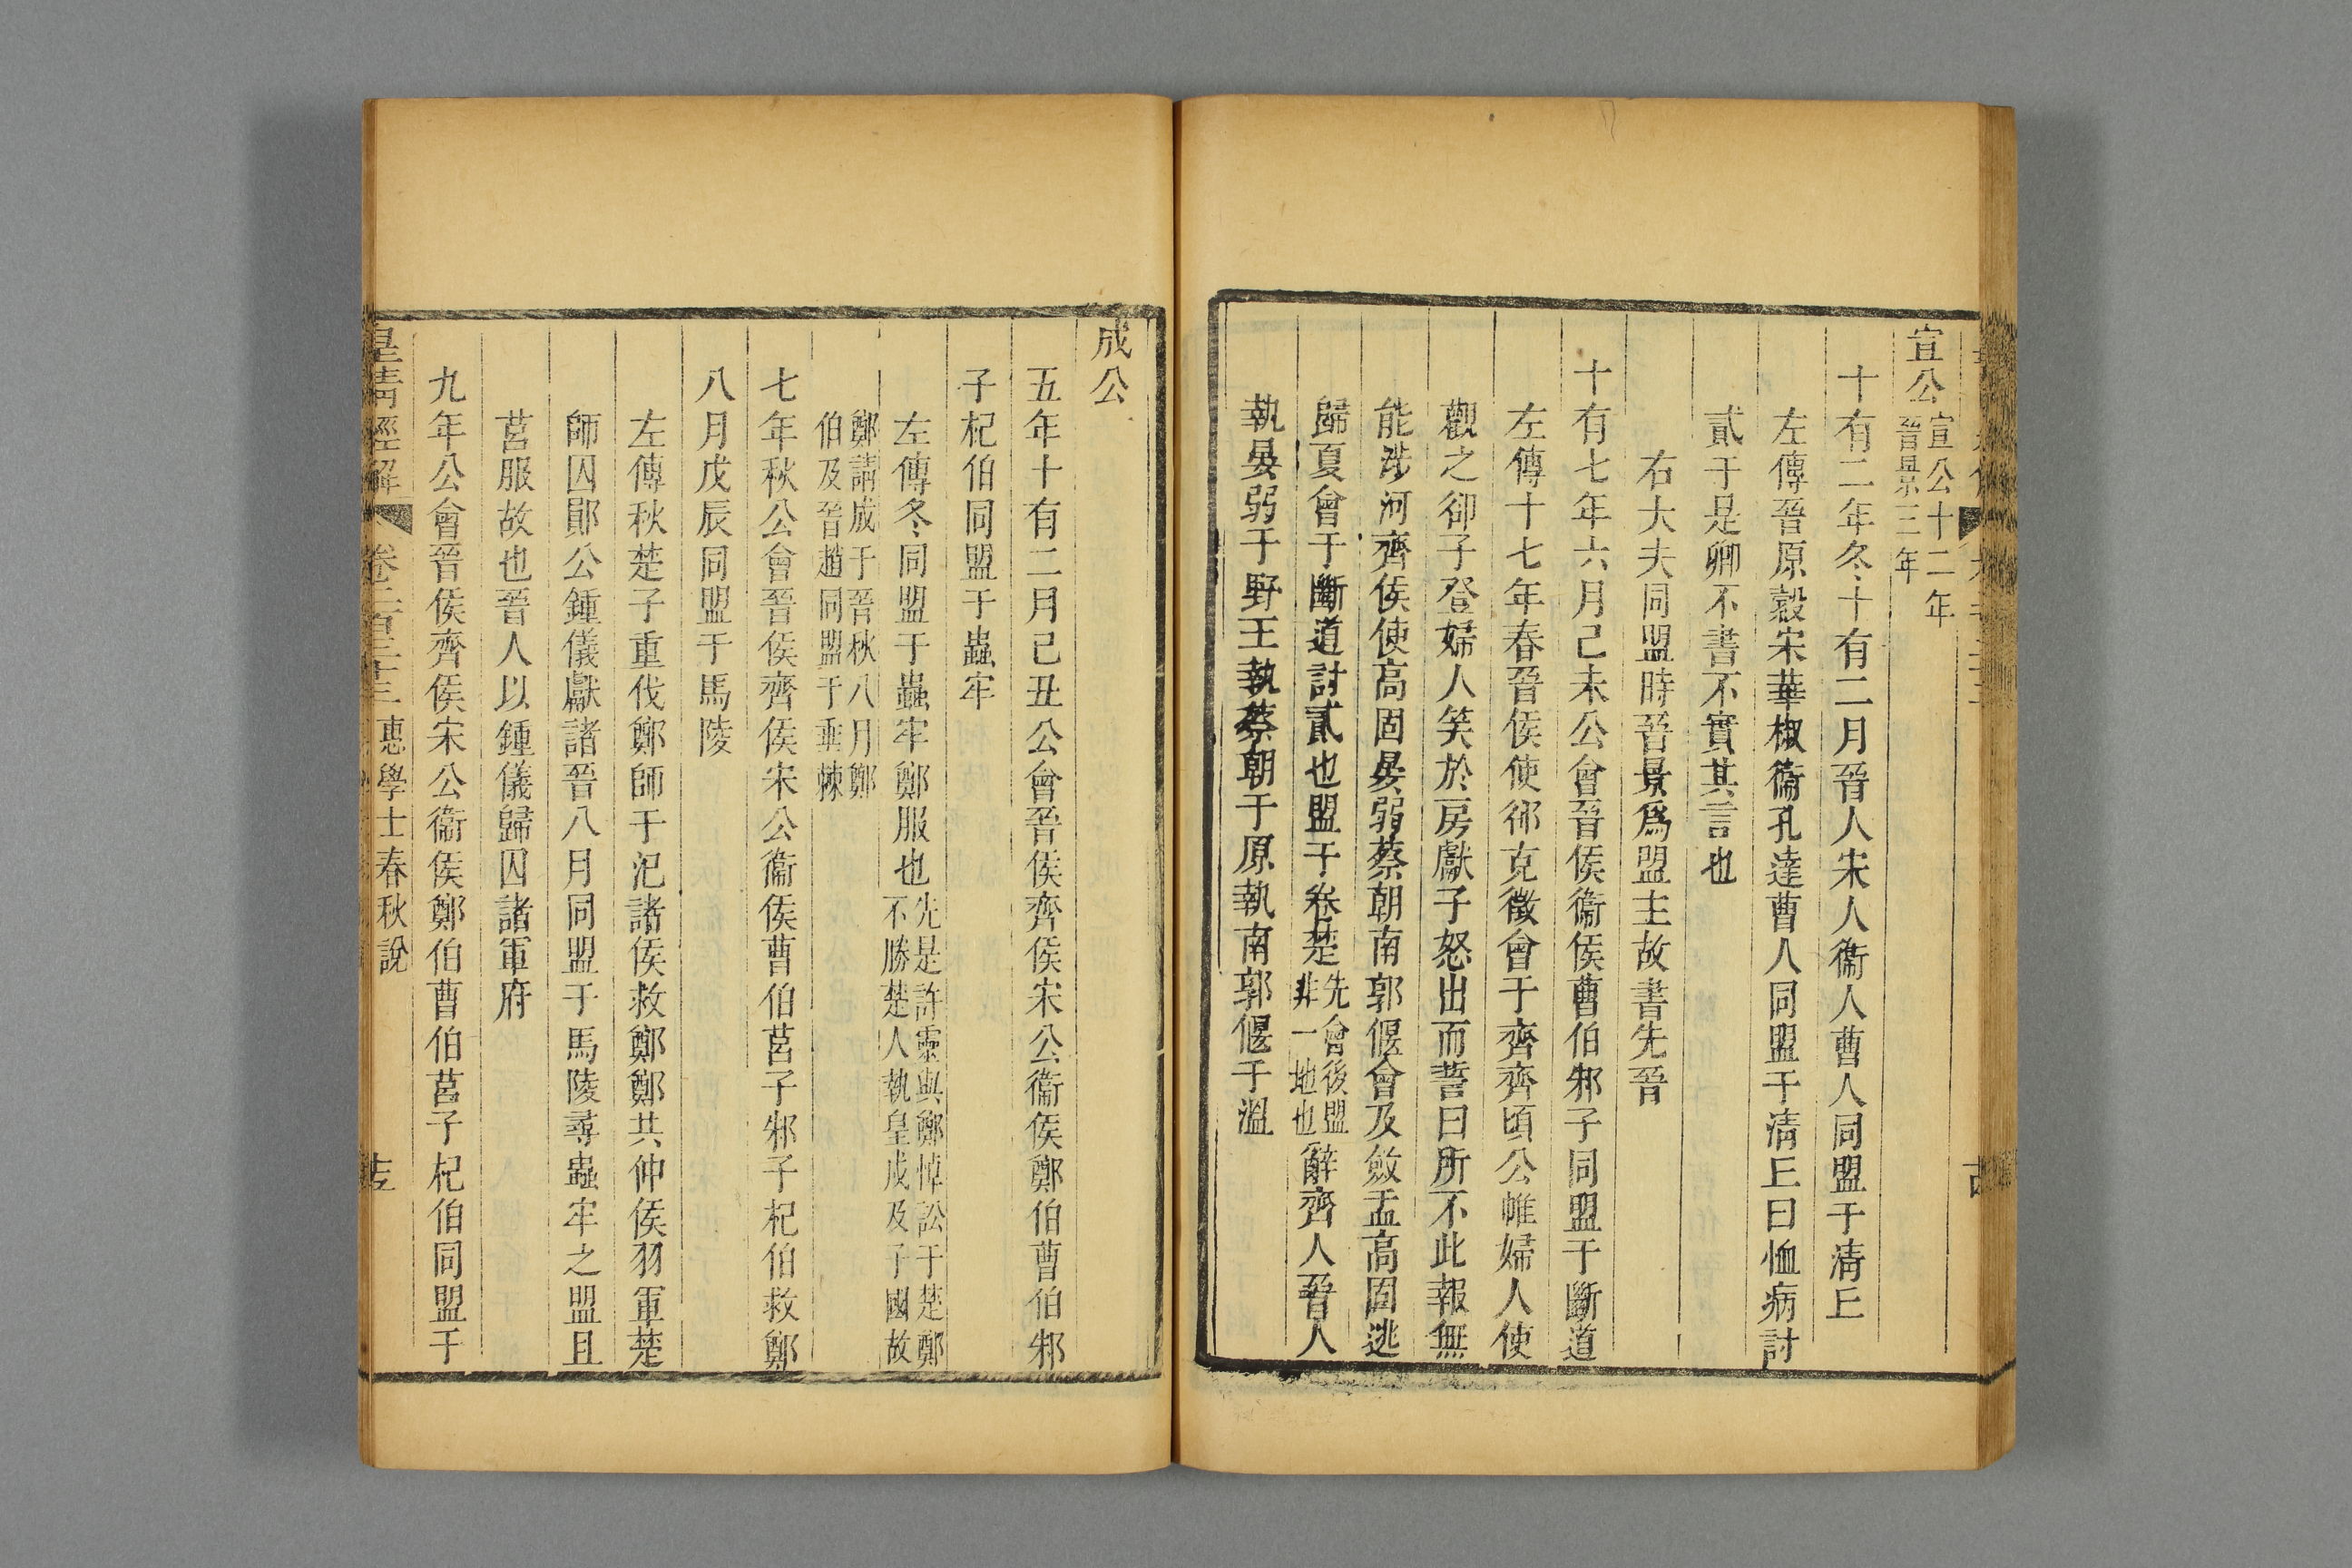 宣公宣公十二年晉景三年
十有二年冬十有二月晉人宋人衞人曹人同盟于淸𠀉
左傳晉原縠宋華椒衞孔達曹人同盟于淸𠀉曰恤病討
貳于是卿不書不實其言也
右大夫同盟時晉景爲盟主故書先晉
十有七年六月己未公會晉侯衞侯曹伯邾子同盟于斷道
左傳十七年春晉侯使郤克徵會于齊齊頃公帷婦人使
觀之郤子登婦人笑於房獻子怒出而誓曰所不此報無
能涉河齊侯使高固晏弱蔡朝南郭偃會及斂盂高固逃
歸夏會于斷道討貳也盟于卷楚先會後盟非一地也辭齊人晉人
執晏弱于野王執蔡朝于原執南郭偃于溫
成公
五年十有二月己丑公會晉侯齊侯宋公衞侯鄭伯曹伯邾
子杞伯同盟于蟲牢
左傳冬同盟于蟲牢鄭服也先是許靈與鄭悼訟于楚鄭不勝楚人執皇戌及子國故
鄭請成于晉秋八月鄭伯及晉趙同盟于垂棘
七年秋公會晉侯齊侯宋公衞侯曹伯莒子邾子杞伯救鄭
八月戊辰同盟于馬陵
左傳秋楚子重伐鄭師于氾諸侯救鄭鄭共仲侯羽軍楚
師囚鄖公鍾儀獻諸晉八月同盟于馬陵尋蟲牢之盟且
莒服故也晉人以鍾儀歸囚諸軍府
九年公會晉侯齊侯宋公衞侯鄭伯曹伯莒子杞伯同盟于
皇淸經解 卷二百三十三 惠學士春秋說